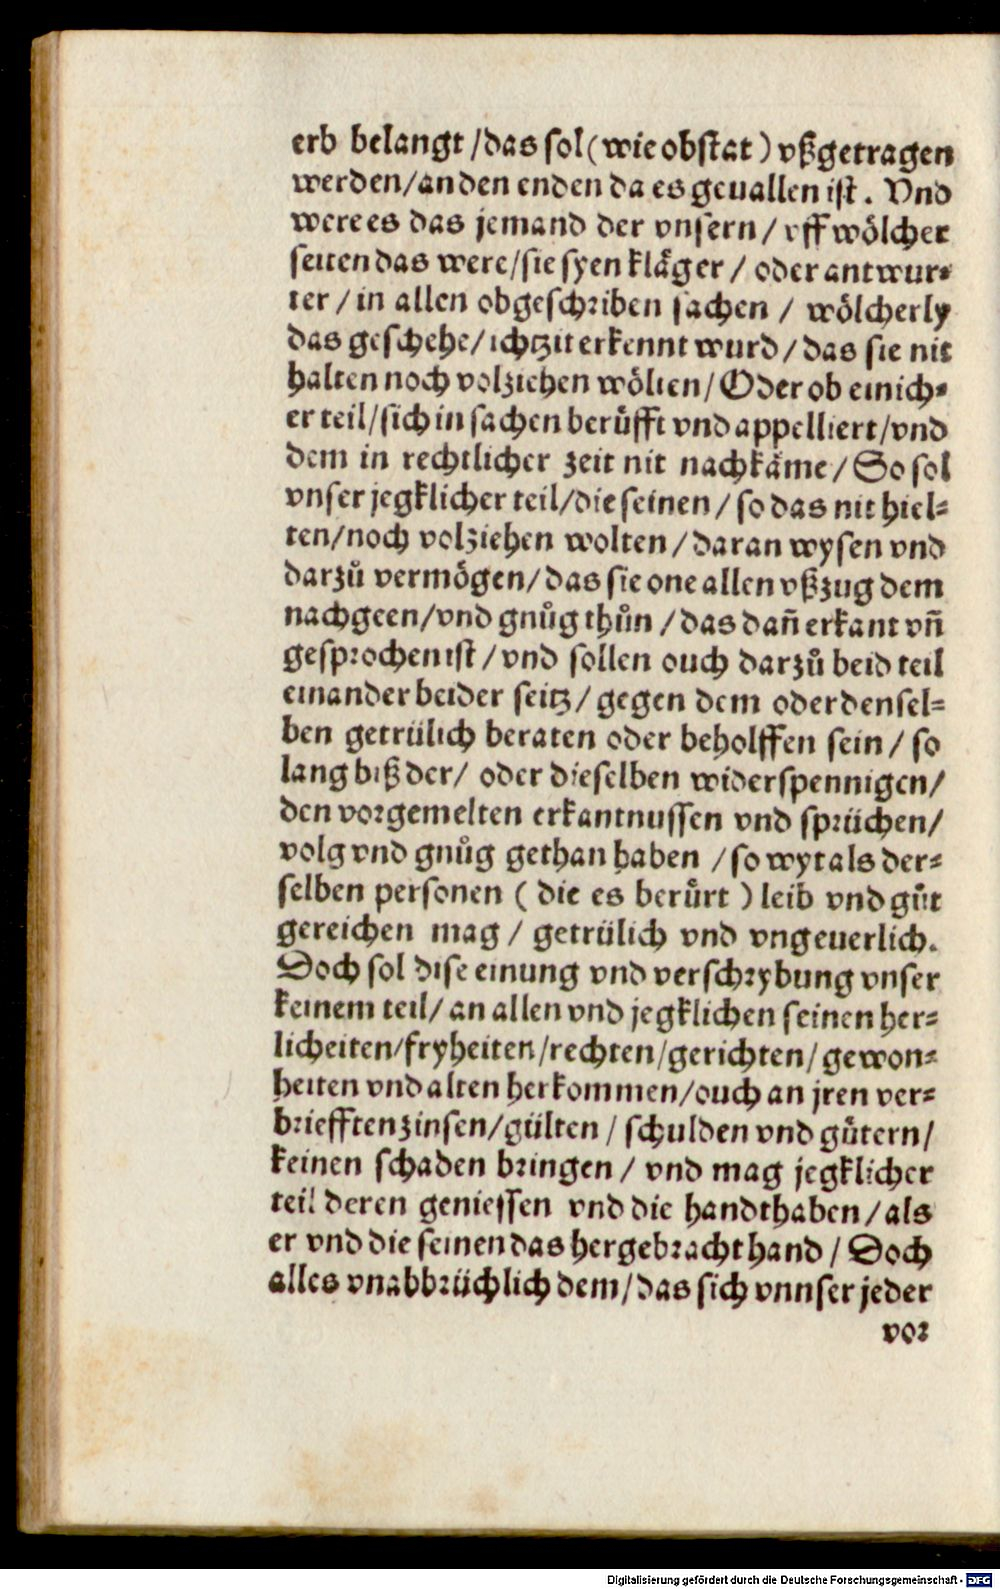 erb belangt /das sol (wie obstat) vßgetragen
werden/an den enden da es geuallen ist. Vnd
were es das jemand der vnsern / vff wölcher
seiten das were/sie syen kläger / oder antwur⸗
ter / in allen obgeschriben sachen / wölcherly
das geschehe/ ichtzit erkennt wurd / das sie nit
halten noch volziehen wölten/ Oder ob einich⸗
er teil/sich in sachen berůfft vnd appelliert/vnd
dem in rechtlicher zeit nit nachkäme / So sol
vnser jegklicher teil/die seinen / so das nit hiel⸗
ten/noch volziehen wolten / daran wysen vnd
darzů vermögen/ das sie one allen vßzug dem
nachgeen/vnd gnůg thůn / das dañ erkant vñ
gesprochen ist / vnd sollen ouch darzů beid teil
einander beider seitz / gegen dem oder densel⸗
ben getrülich beraten oder beholffen sein / so
lang biß der/ oder dieselben widerspennigen/
den vorgemelten erkantnussen vnd sprüchen/
volg vnd gnůg gethan haben / so wyt als der⸗
selben personen ( die es berůrt ) leib vnd gůt
gereichen mag / getrülich vnd vngeuerlich.
Doch sol dise einung vnd verschrybung vnser
keinem teil/ an allen vnd jegklichen seinen her⸗
licheiten/fryheiten/rechten/gerichten/ gewon⸗
heiten vnd alten herkommen/ouch an jren ver⸗
briefften zinsen/gülten / schulden vnd gůtern/
keinen schaden bringen / vnd mag jegklicher
teil deren geniessen vnd die handthaben / als
er vnd die seinen das hergebracht hand / Doch
alles vnabbrüchlich dem/das sich vnnser jeder
vor
Digitalisierung gefördert durch die Deutsche Forschungsgemeinschaft - DFG